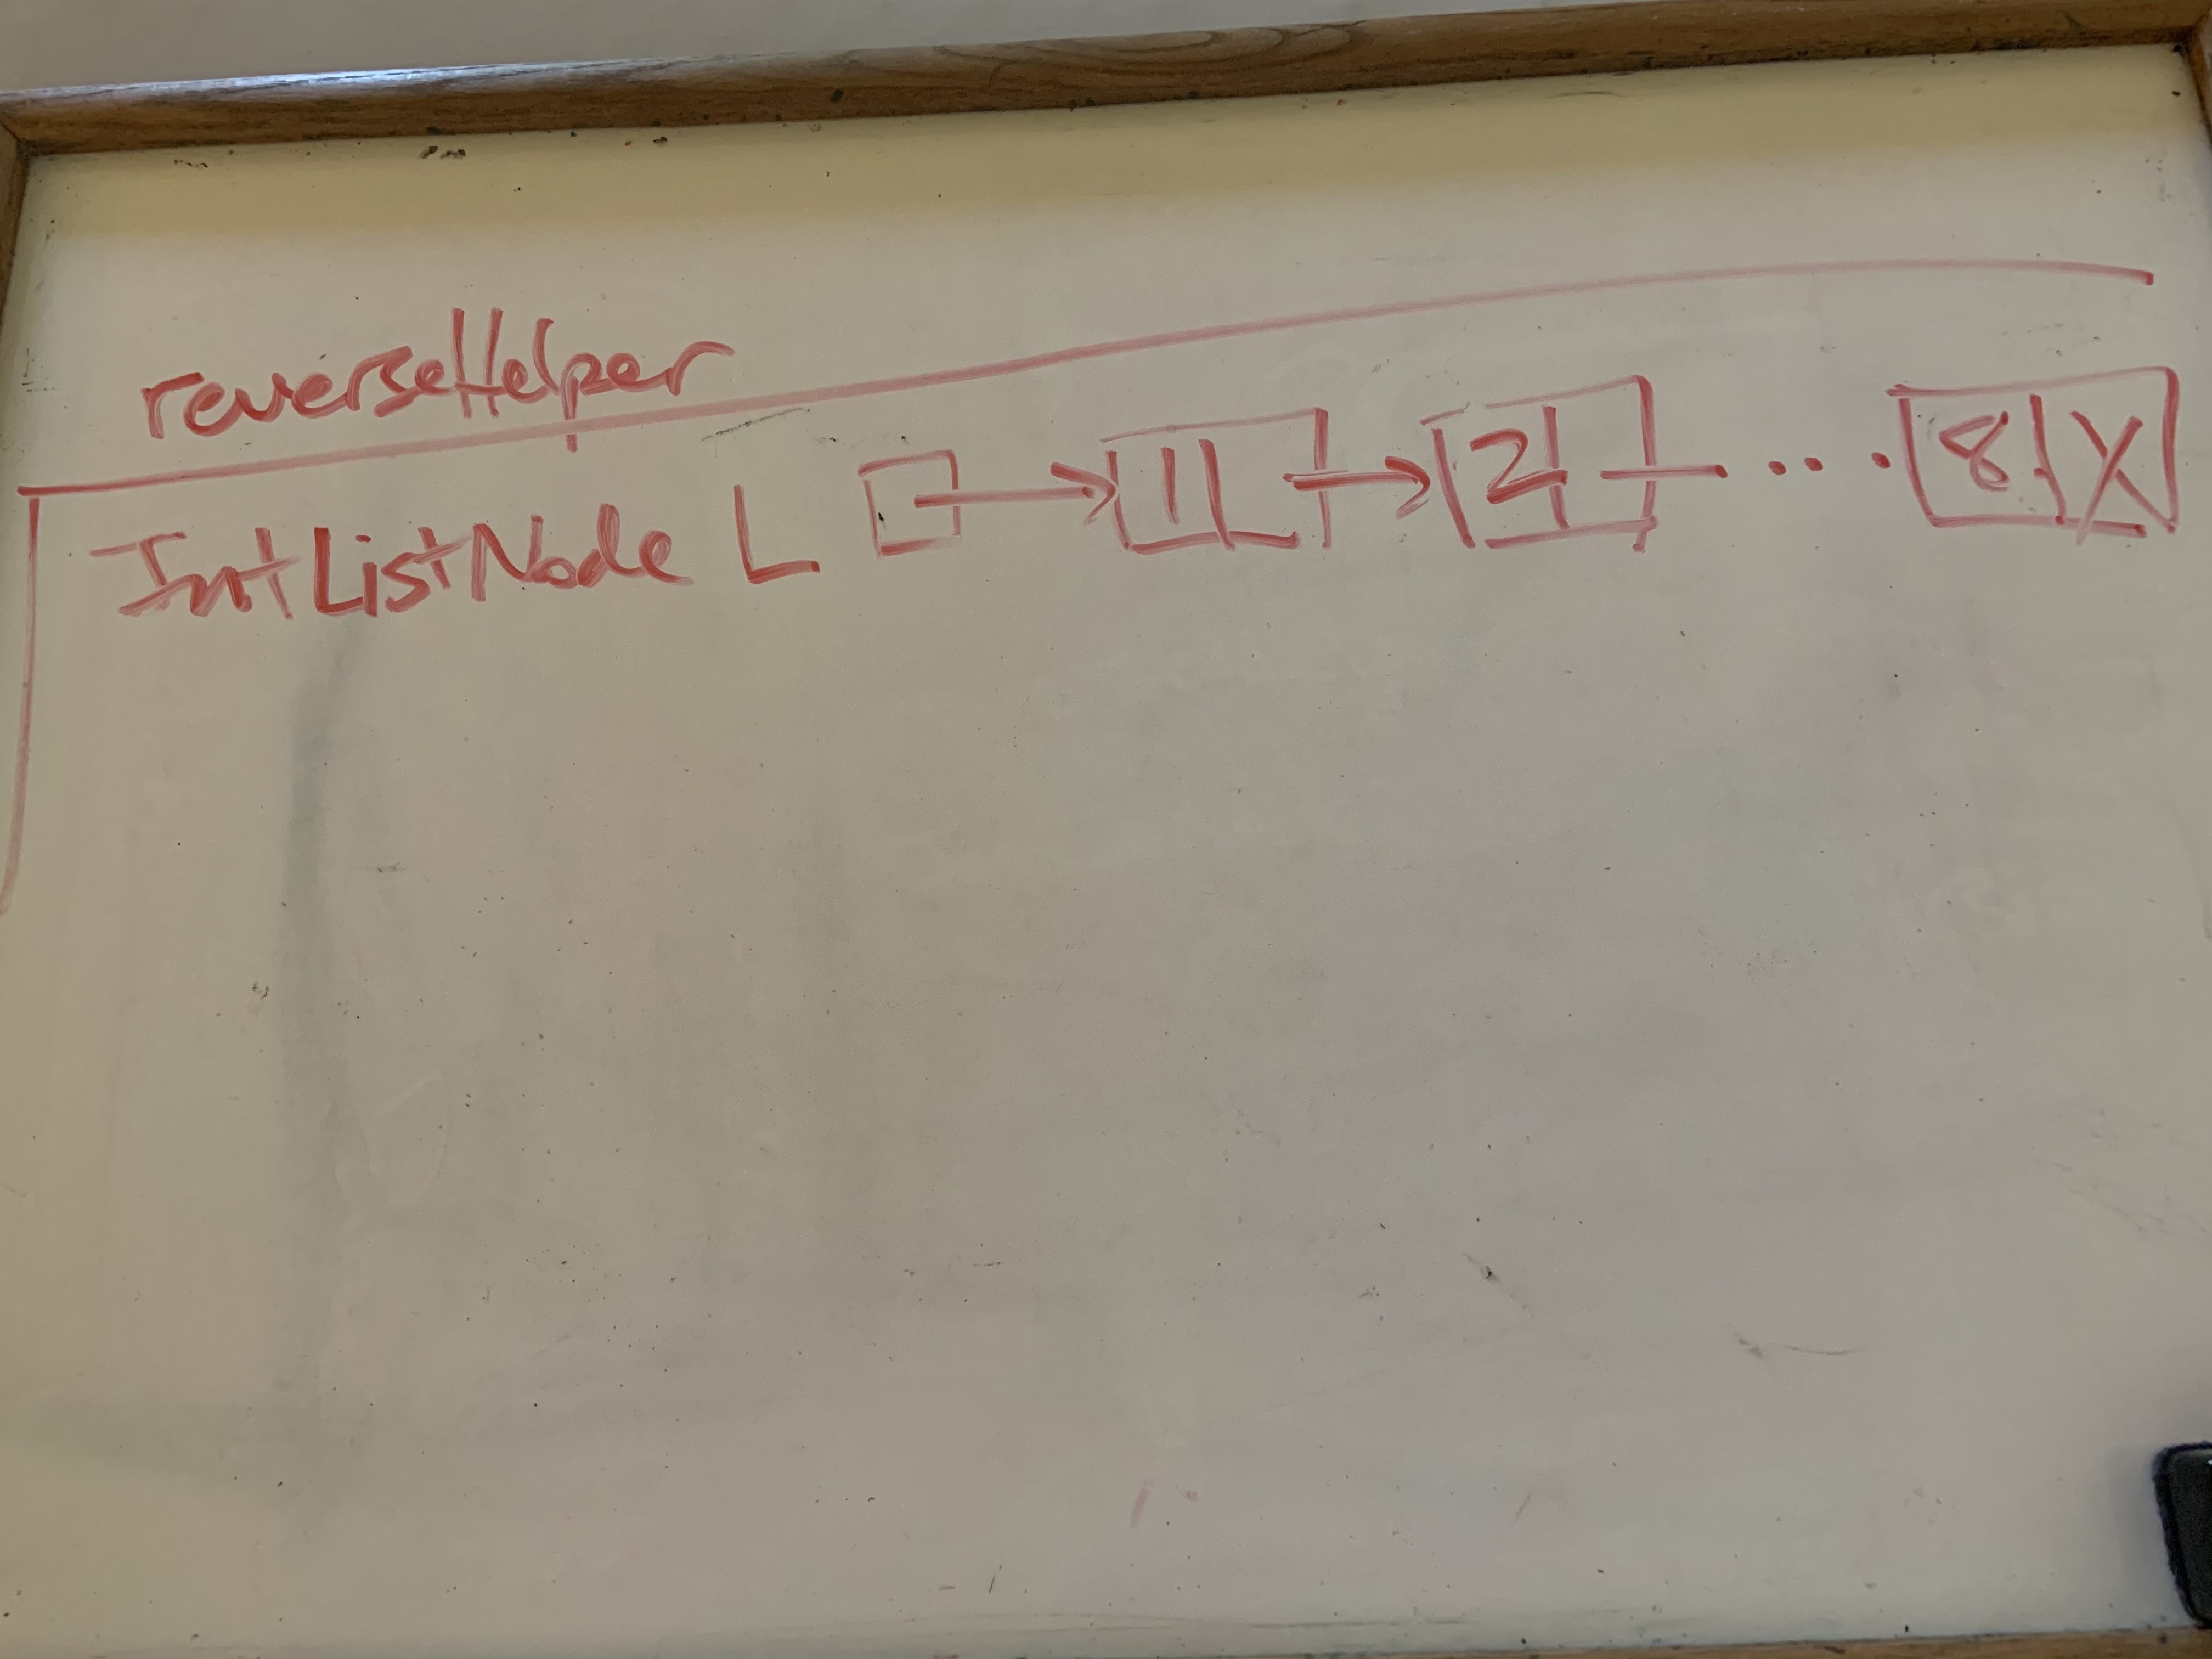 reverseHelper
IntListNode L 1 2 ... 8 X